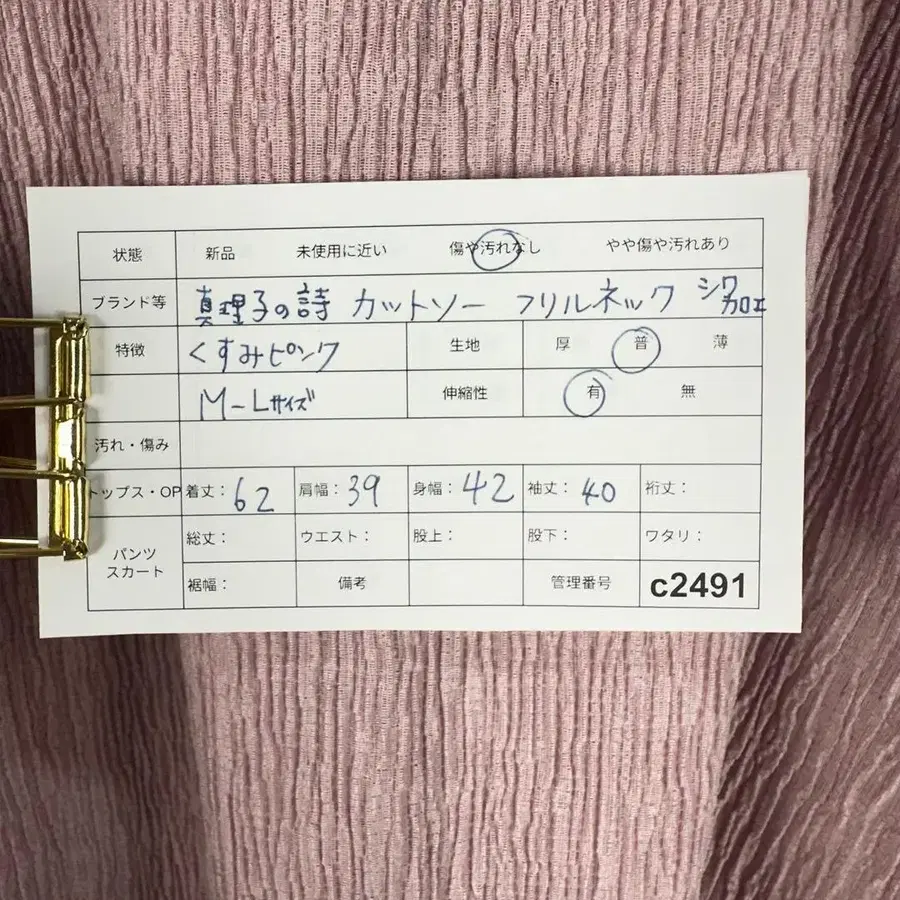 状態 新品 未使用に近い 傷や汚れなし やや傷や汚れあり
ブランド等 真理子の詩 カットソー フリルネック シワ加工
特徴 くすみピンク 生地 厚 普 薄
M-Lサイズ 伸縮性 有 無
汚れ・傷み
トップス・OP 着丈：62 肩幅：39 身幅：42 袖丈：40 裄丈：
パンツ スカート 総丈： ウエスト： 股上： 股下： ワタリ：
裾幅： 備考 管理番号 c2491